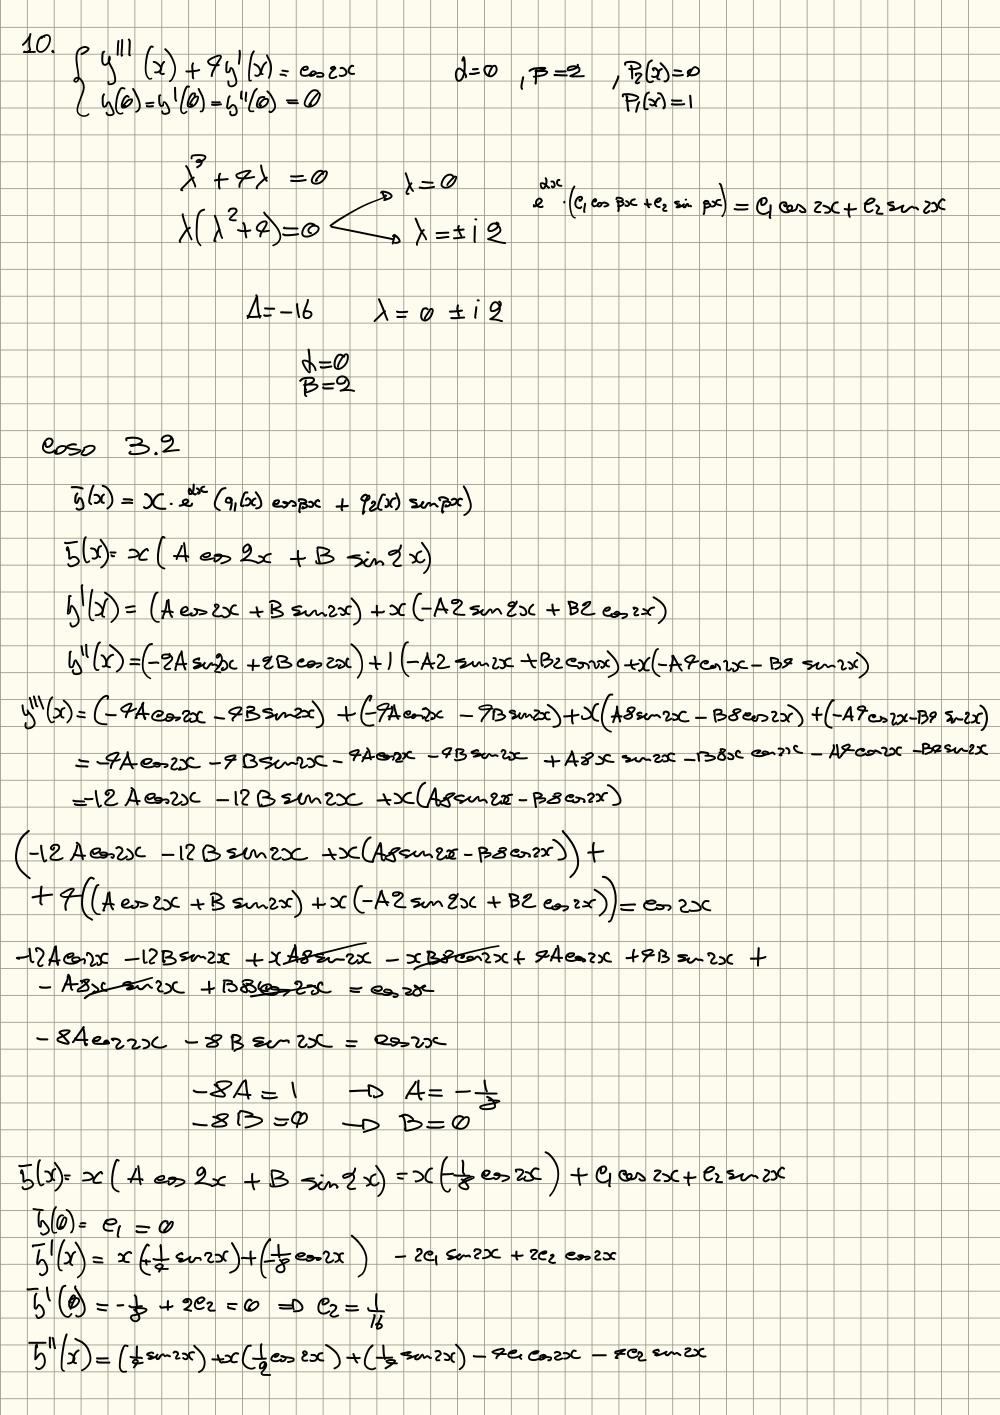 10. { y'''(x) + 4y'(x) = cos 2x    α=0 , β=2 , P2(x)=0
y(0)=y'(0)=y''(0)=0    P1(x)=1
λ³ + 4λ = 0    λ=0
λ(λ²+4)=0    λ=±i2    e^αx · (c1 cos βx + c2 sin βx) = c1 cos 2x + c2 sin 2x
Δ=-16    λ = 0 ±i2
α=0
β=2
caso 3.2
ȳ(x) = x · e^αx (q1(x) cos βx + q2(x) sin βx)
ȳ(x)= x( A cos 2x + B sin 2x)
y'(x) = (A cos 2x + B sin 2x) + x(-A2 sin 2x + B2 cos 2x)
y''(x) = (-2A sin 2x + 2B cos 2x) + 1(-A2 sin 2x + B2 cos 2x) + x(-A4 cos 2x - B4 sin 2x)
y'''(x) = (-4A cos 2x - 4B sin 2x) + (-4A cos 2x - 4B sin 2x) + x(A8 sin 2x - B8 cos 2x) + (-A4 cos 2x - B4 sin 2x)
= -4A cos 2x - 4B sin 2x - 4A cos 2x - 4B sin 2x + A8x sin 2x - B8x cos 2x - A4 cos 2x - B4 sin 2x
= -12 A cos 2x - 12 B sin 2x + x(A8 sin 2x - B8 cos 2x)
(-12 A cos 2x - 12 B sin 2x + x(A8 sin 2x - B8 cos 2x)) +
+ 4((A cos 2x + B sin 2x) + x(-A2 sin 2x + B2 cos 2x)) = cos 2x
-12A cos 2x - 12B sin 2x + xA8 sin 2x - xB8 cos 2x + 4A cos 2x + 4B sin 2x +
- A8x sin 2x + B8 cos 2x = cos 2x
-8A cos 2 2x - 8B sin 2x = cos 2x
-8A = 1 → A = -1/8
-8B = 0 → B = 0
ȳ(x)= x( A cos 2x + B sin 2x) = x(-1/8 cos 2x) + c1 cos 2x + c2 sin 2x
ȳ(0)= c1 = 0
ȳ'(x) = x(+1/4 sin 2x) + (-1/8 cos 2x) - 2c1 sin 2x + 2c2 cos 2x
ȳ'(0) = -1/8 + 2c2 = 0 ⇒ c2 = 1/16
ȳ''(x) = (1/4 sin 2x) + x(1/2 cos 2x) + (1/4 sin 2x) - 4c1 cos 2x - 4c2 sin 2x